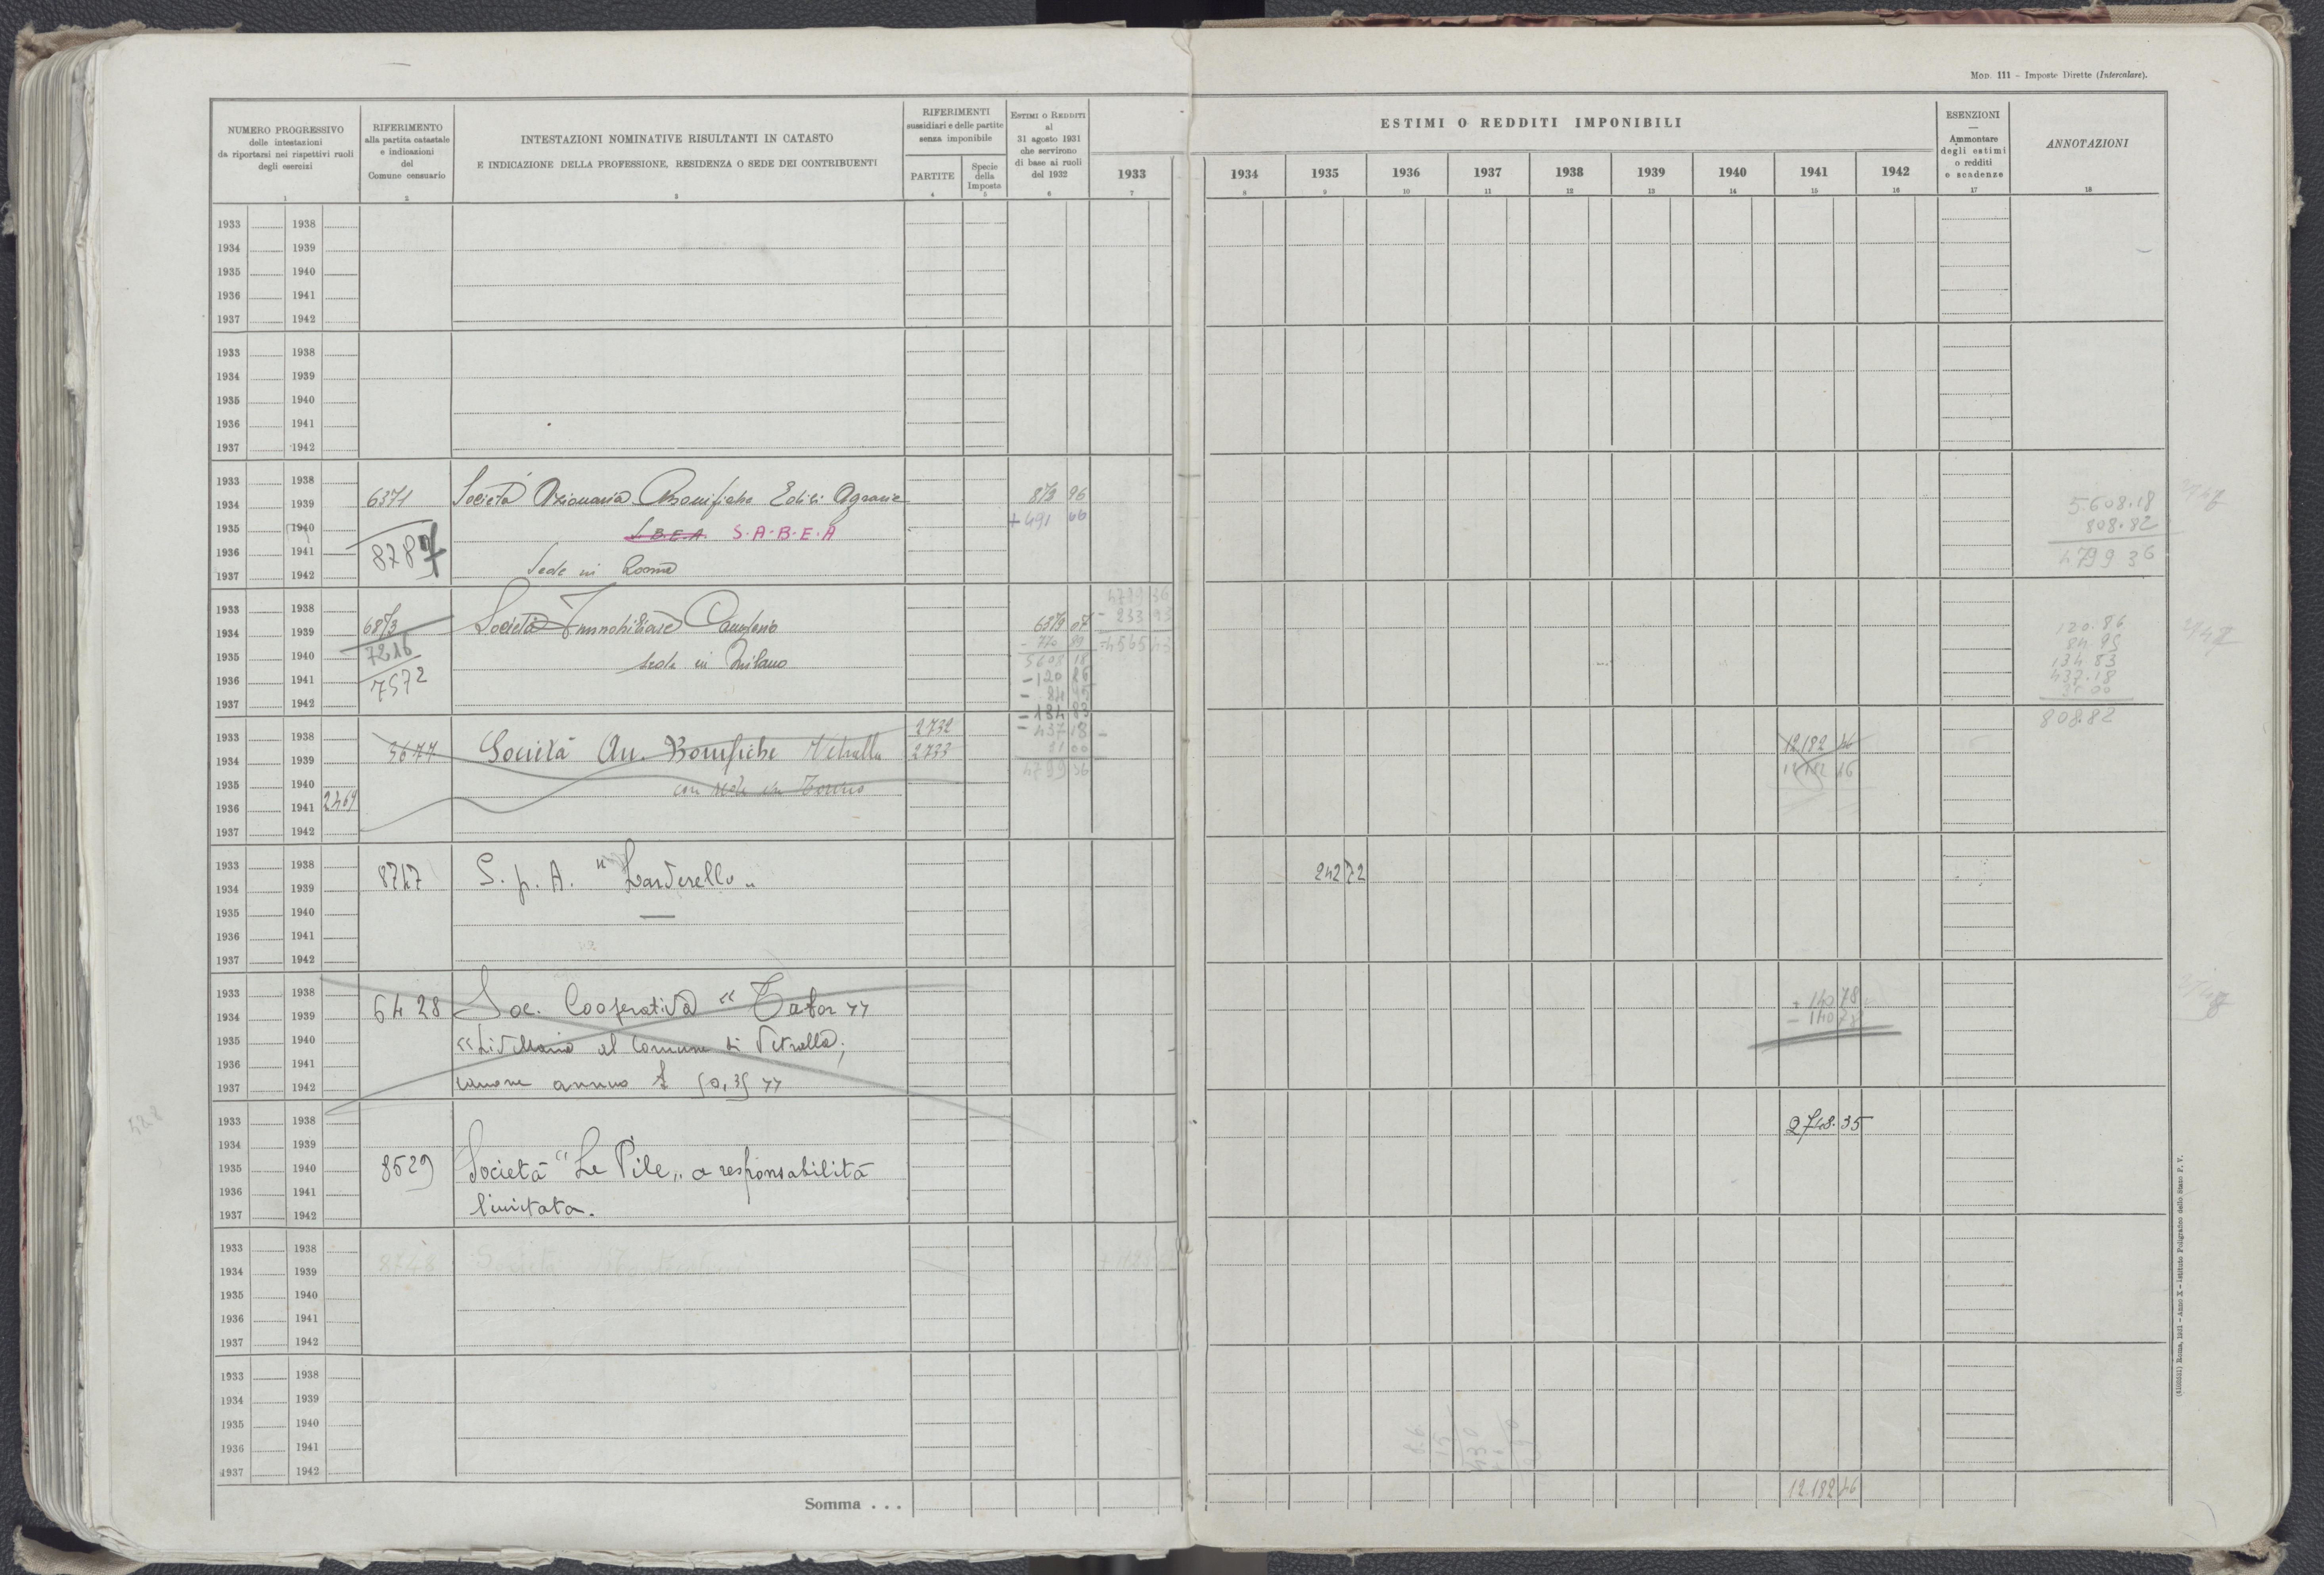 MOD. 111 - Imposte Dirette (Intercalare).
NUMERO PROGRESSIVO
delle intestazioni
da riportarsi nei rispettivi ruoli
degli esercizi
1
RIFERIMENTO
alla partita catastale
e indicazioni
del
Comune censuario
2
INTESTAZIONI NOMINATIVE RISULTANTI IN CATASTO
E INDICAZIONE DELLA PROFESSIONE, RESIDENZA O SEDE DEI CONTRIBUENTI
3
RIFERIMENTI
sussidiari e delle partite
senza imponibile
PARTITE
4
Specie
della
Imposta
5
ESTIMI O REDDITI
al
31 agosto 1931
che servirono
di base ai ruoli
del 1932
6
ESTIMI O REDDITI IMPONIBILI
1933
7
1934
8
1935
9
1936
10
1937
11
1938
12
1939
13
1940
14
1941
15
1942
16
ESENZIONI
—
Ammontare
degli estimi
o redditi
e scadenze
17
ANNOTAZIONI
18
1933 1938
1934 1939
1935 1940
1936 1941
1937 1942
1933 1938
1934 1939
1935 1940
1936 1941
1937 1942
1933 1938
1934 1939 6371 Società Azionaria Bonifiche Edili Agrarie 873 96 5.608.18
1935 1940 S.B.E.A. S.A.B.E.A + 491 66 808.82
1936 1941 8787 4799 36
1937 1942 Sede in Roma
1933 1938 4799 36
1934 1939 6873 Società Immobiliare 6379 07 - 233 93 120.86
1935 1940 7216 sede in Milano - 770 89 4565 43 84.95
1936 1941 7572 5608 18 134 83
1937 1942 - 120 86 437.18
- 84 95 31 00
- 134 83 808.82
1933 1938 2732 - 437 18
1934 1939 3677 Società An. Bonifiche Vetralla 2733 31 00 12182 46
1935 1940 con sede in Torino 4799 36 12182 46
1936 1941 2469
1937 1942
1933 1938
1934 1939 8747 S.p.A. "Larderello" 242 72
1935 1940
1936 1941
1937 1942
1933 1938 + 140 78
1934 1939 6428 Soc. Cooperativa " " - 140 78
1935 1940 "Livellaria al Comune di Vetralla;
1936 1941
1937 1942 canone annuo £ 50,35"
1933 1938 2748.35
1934 1939
1935 1940 8529 Società "Le Pile" a responsabilità
1936 1941
1937 1942 limitata.
1933 1938
1934 1939 8748 Società
1935 1940
1936 1941
1937 1942
1933 1938
1934 1939
1935 1940
1936 1941
1937 1942
Somma . . . 12.182 46
Roma, 1931 - Anno X - Istituto Poligrafico dello Stato P. V.